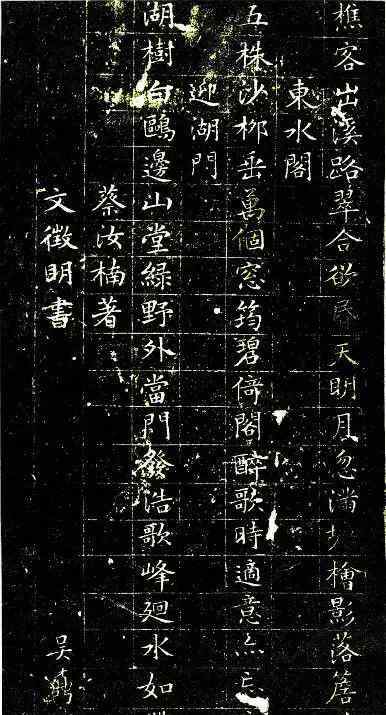 樵客出溪路翠合欲天明月忽滿檜影落簷
東水閣
五株沙柳垂萬個窓筠碧倚閣醉歌時適意亦忘
迎湖門
湖樹白鷗邊山堂綠野外當門發浩歌峰迴水如
蔡汝楠著
文徵明書
吴鼒